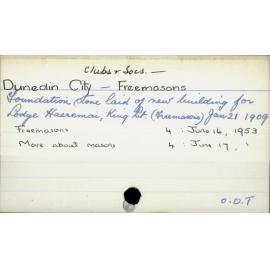 Clubs & Socs. —
Dunedin City — Freemasons
Foundation Stone laid of new building for
Lodge Haeremai, King St. (Freemasons) Jan 21 1909
Freemasons 4 : June 16, 1953
More about masons 4 : June 17, "
O.D.T